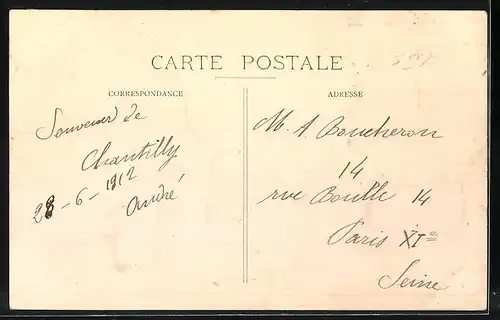 CARTE POSTALE
CORRESPONDANCE
Souvenir de
Chantilly
28-6-1912
André
ADRESSE
M. A. Boucheron
14
rue Boulle 14
Paris XIe
Seine